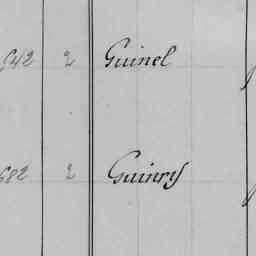 642 2 Guinel
682 2 Guinry